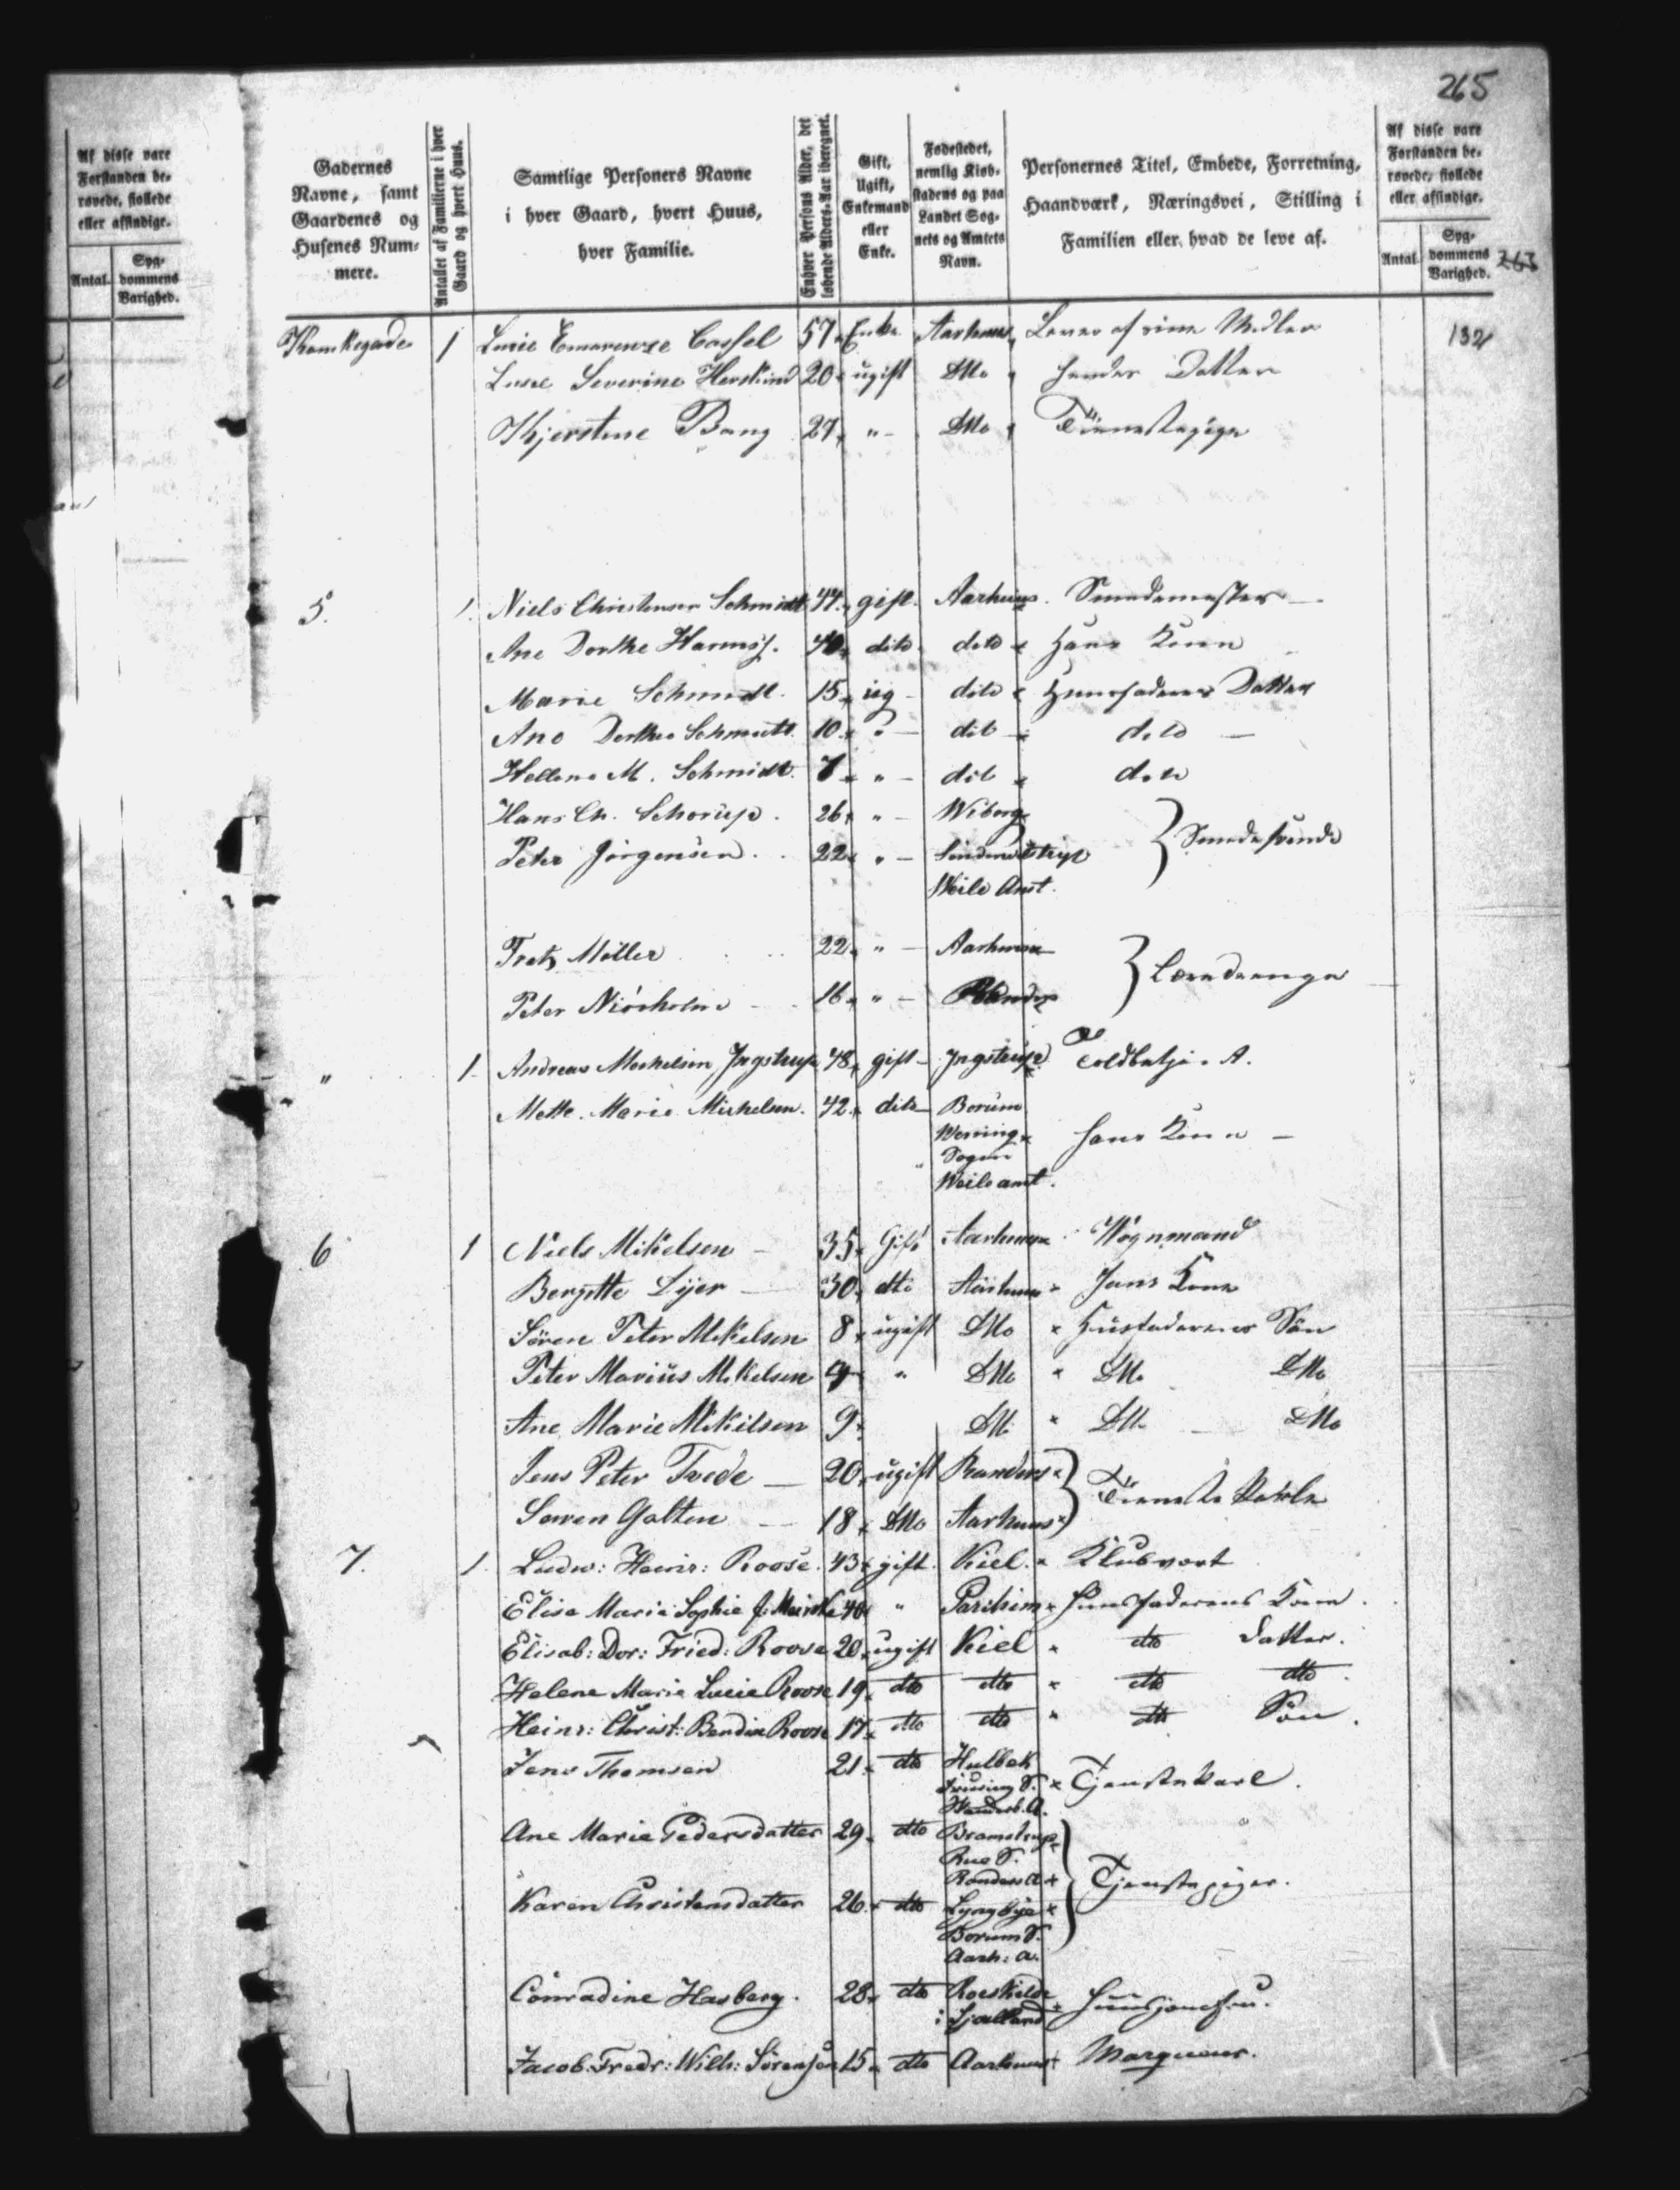 265
Af disse vare Forstanden berøvede, fiollede eller afsindige.
Antal.
Sygdommens Varighed.
Gadernes Navne, samt Gaardenes og Husenes Nummere.
Antallet af Familierne i hver Gaard og hvert Huus.
Samtlige Personers Navne i hver Gaard, hvert Huus, hver Familie.
Enhver Persons Alder, det løbende Alders-Aar iberegnet.
Gift, Ugift, Enkemand eller Enke.
Fødestedet, nemlig Kiøbstadens og paa Landet Sognets og Amtets Navn.
Personernes Titel, Embede, Forretning, Haandværk, Næringsvei, Stilling i Familien eller hvad de leve af.
Af disse vare Forstanden berøvede, fiollede eller afsindige.
Antal
Sygdommens Varighed.
263
1 Lucie Emerenze Cassel 57 Enke Aarhuus Lever af sine Midler 132
Severine Herskind 20 ugift Ditto hendes Datter
Kjerstine Bang 27 " - Ditto Tienestepige
5. 1. Niels Christensen Schmidt 44 gift Aarhuus Smedemester
Ane Dorthe 40 dito dito Hans Kone
Marie Schmidt 15 ug - dito Huusfaderens Datter
Ane Dorthea Schmidt 10 " - dito dito
Hellene M. Schmidt 7 " - dito dito
Hans Ch. Schorup 26 " - Wiborg
Peter Jørgensen 22 " - } Smedesvende
Weile Amt.
Møller 22 " - Aarhuus
Peter 16 " - Randers } Læredrenge
" 1 Andreas Michelsen Jngstrup 48 gift - Jngstrup
Mette Marie Michelsen 42 dito Borum
Sogn hans Kone -
Weile amt.
6 1 Niels Mikelsen - 35 Gift Aarhuus Wognmand
Bergitte 30 dto Aarhuus Hans Kone
Sören Peter Mikelsen 8 ugift Ditto Huusfaderens Sön
Peter Mariüs Mikelsen 4 " Ditto Ditto Ditto
Ane Marie Mikelsen 9 Ditto Ditto Ditto
Jens Peter Tvede - 20 ugift Randers
Søren Galten - 18 Ditto Aarhuus } Tieneste Karle
7. 1. Ludw: Heinr: Roose 43 gift Kiel Klubvært
Elise Marie Sophie f. 40 " Parchim Huusfaderens Kone.
Elisab: Dor: Fried: Roose 20 ugift Kiel dto Datter.
Helene Marie Lucie Roose 19 dto dto dto dto
Heinr: Christ: Bendix Roose 17 dto dto dto Sön.
Jens Thomsen 21 dto Hulbek
S. Tjenestekarl.
A.
Ane Marie Pedersdatter 29 dto Bramstrup
Rue S.
Randers A } Tjenestepiger.
Karen Christensdatter 26 dto Lyngbye
Borum S.
Aarh: A.
Conradine Hasberg. 28 dto Roeskilde
i Sjælland Huusjomfru.
Jacob Fredr: Wilh: Sørensen 15 dto Aarhuus Marqueur.